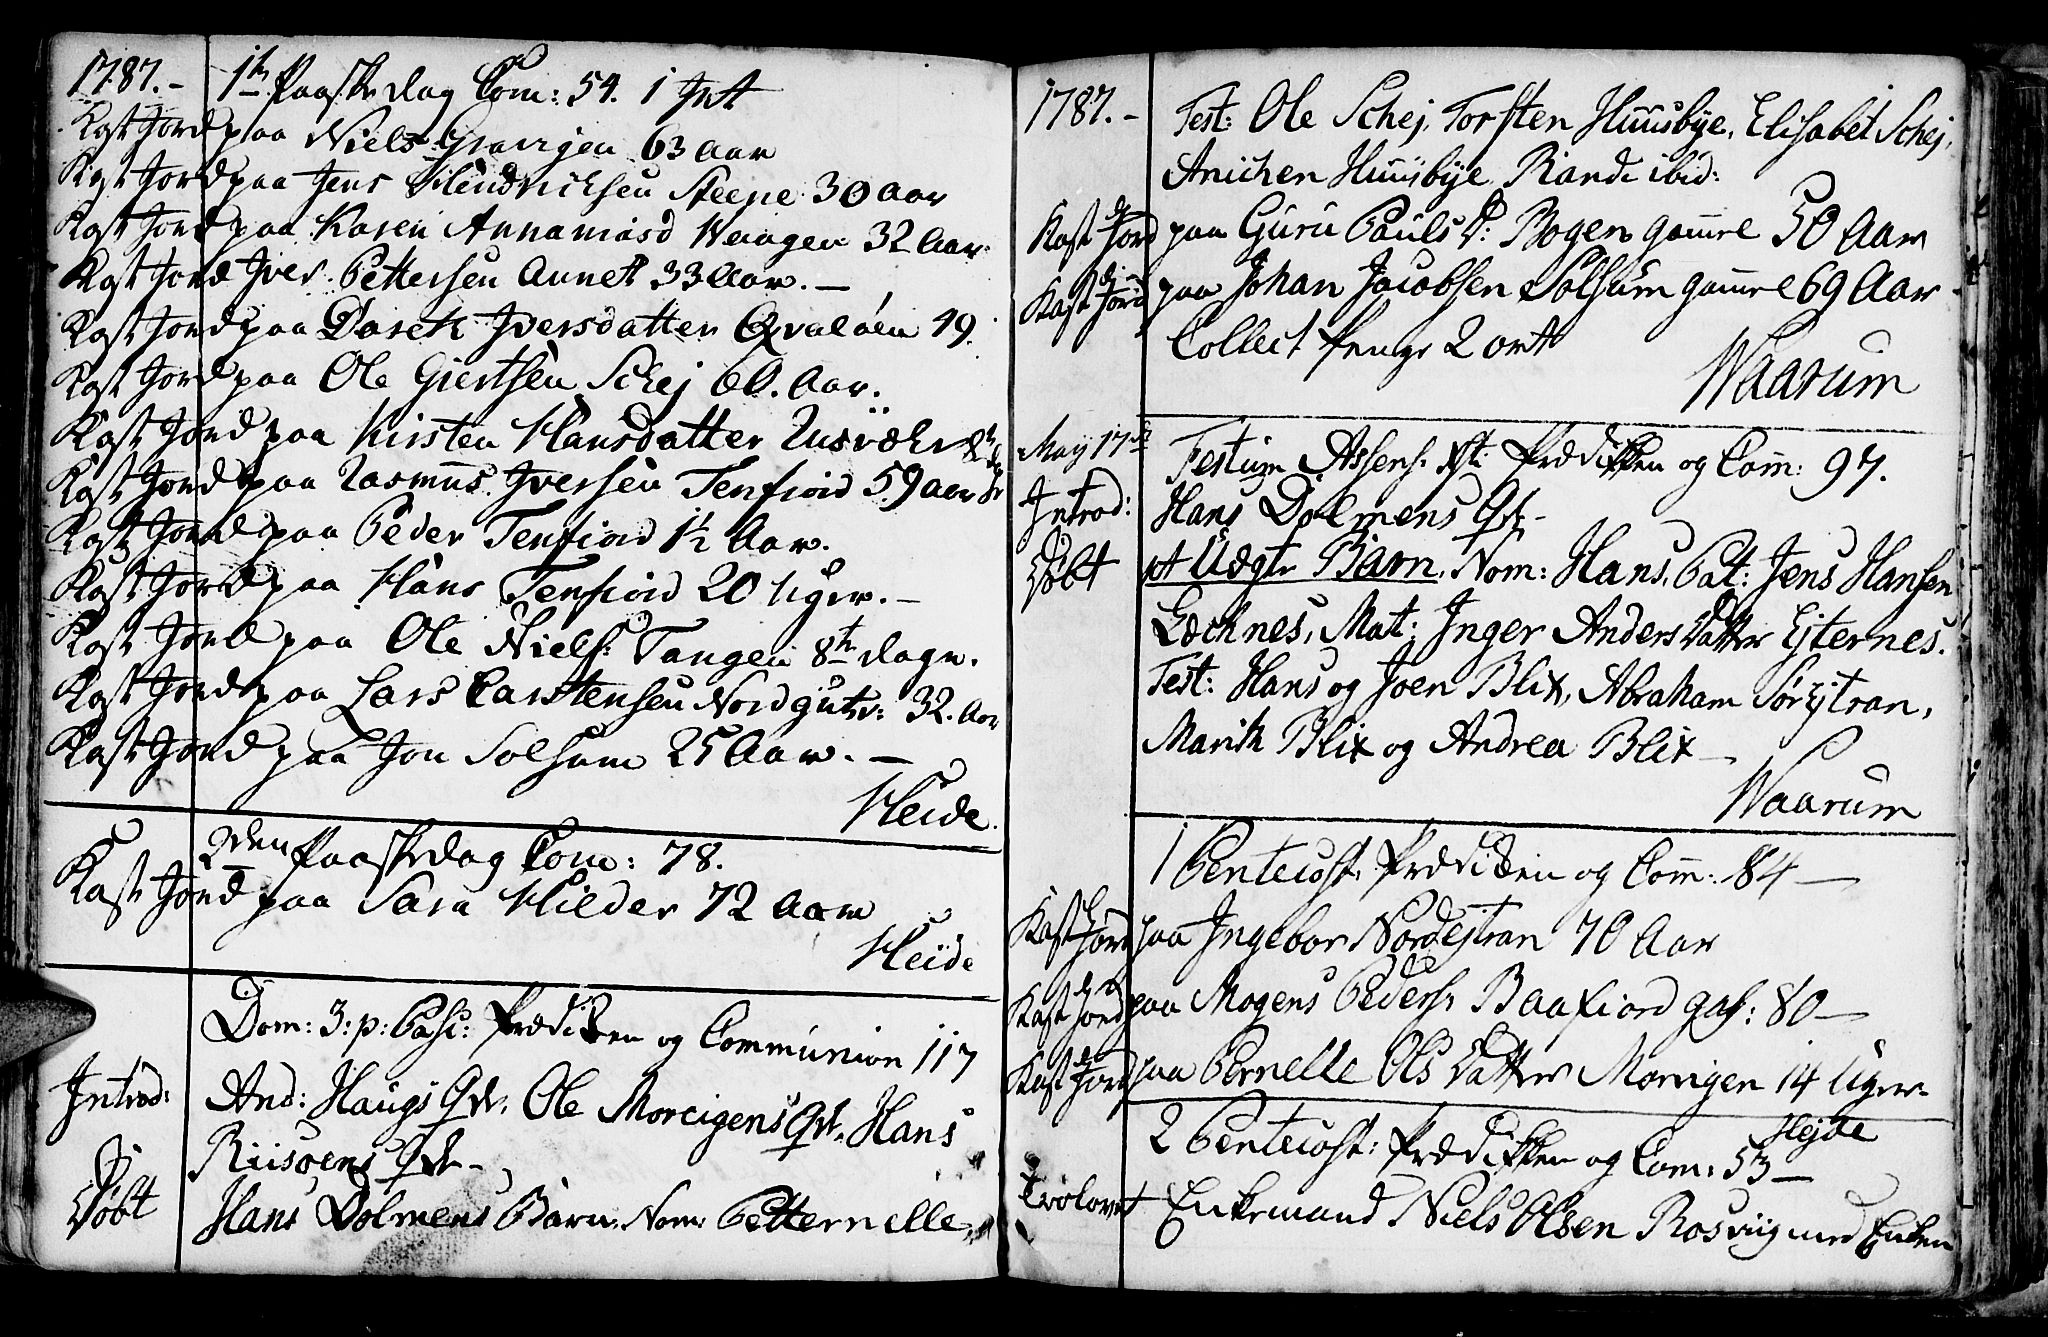 1787. - 1te Paaskedag Com: 54. 1 Int
Kast Jord paa Niels 63 aar
Kast Jord paa Jens Hendrichsen Steene 30 aar
Kast Jord paa Karen Annamasd Waagen 32 Aar.
Kast Jord Iver Pettersen Annet 33 Aar. -
Kast Jord paa Dareth Iversdatter Qvaløen 49.
Kast Jord paa Ole Giertsen Schej 60. Aar.
Kast Jord paa Kirsten Hansdatter
Kast Jord paa Rasmus Iversen Tenfiord 59 aar
Kast Jord paa Peder Tenfiord 1½ Aar.
Kast Jord paa Hans Tenfiord 20 Uger. -
Kast Jord paa Ole Niels: Tangen 8te dage.
Kast Jord paa Lars Carstensen 32. Aar
Kast Jord paa Jon Solsum 25 Aar. -
Heide.
2den Paaskedag Com: 78.
Kast Jord paa Sara Hilder 72 Aar
Heide
Dom: 3: p: Pasc: Prædiken og Communion 117
Introd: And: Haugs Qvi. Ole Morcigens Qvi. Hans
Riisøens Qvi -
Døbt Hans Dolmens Barn. Nom: Petternelle,
1787. - Test: Ole Schej, Torsten Huusbye, Elisabet Schej,
Anichen Huusbye Randi ibid:
Kast Jord paa Guru Pauls D: Bogen gamle 50 Aar
Kast Jord paa Johan Jacobsen Solsum gamle 69 Aar
Collect Penge 2 ort
Waarum
May 17de Festum Assens: Xti: Prædikken og Com: 97.
Introd: Hans Dolmens Qvi -
Døbt et Uægte Barn, Nom: Hans, Pat: Jens Hansen
Lechnes, Mat: Inger Anders Datter Ejternes.
Test: Hans og Joen Blix, Abraham Sørejtran,
Marith Blix og Andrea Blix -
Waarum
1 Pentecost: Prædiken og Com: 84 -
Kast Jord paa Ingebor Nordejtran 70 Aar
Kast Jord paa Mogens Peders: Baafiord gaf: 80 -
Kast Jord paa Pernelle Ols Datter Morrigen 14 Uger -
Hejde
2 Pentecost: Prædikken og Com: 53 -
Trolovet Enkemand Niels Olsen Rosviig med Enken